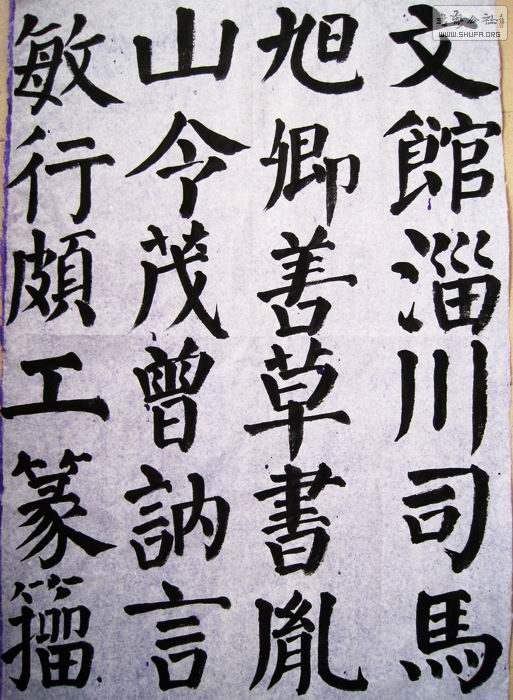 文館淄川司馬
旭卿善草書胤
山令茂曾訥言
敏行頗工篆籀
WWW.SHUFA.ORG